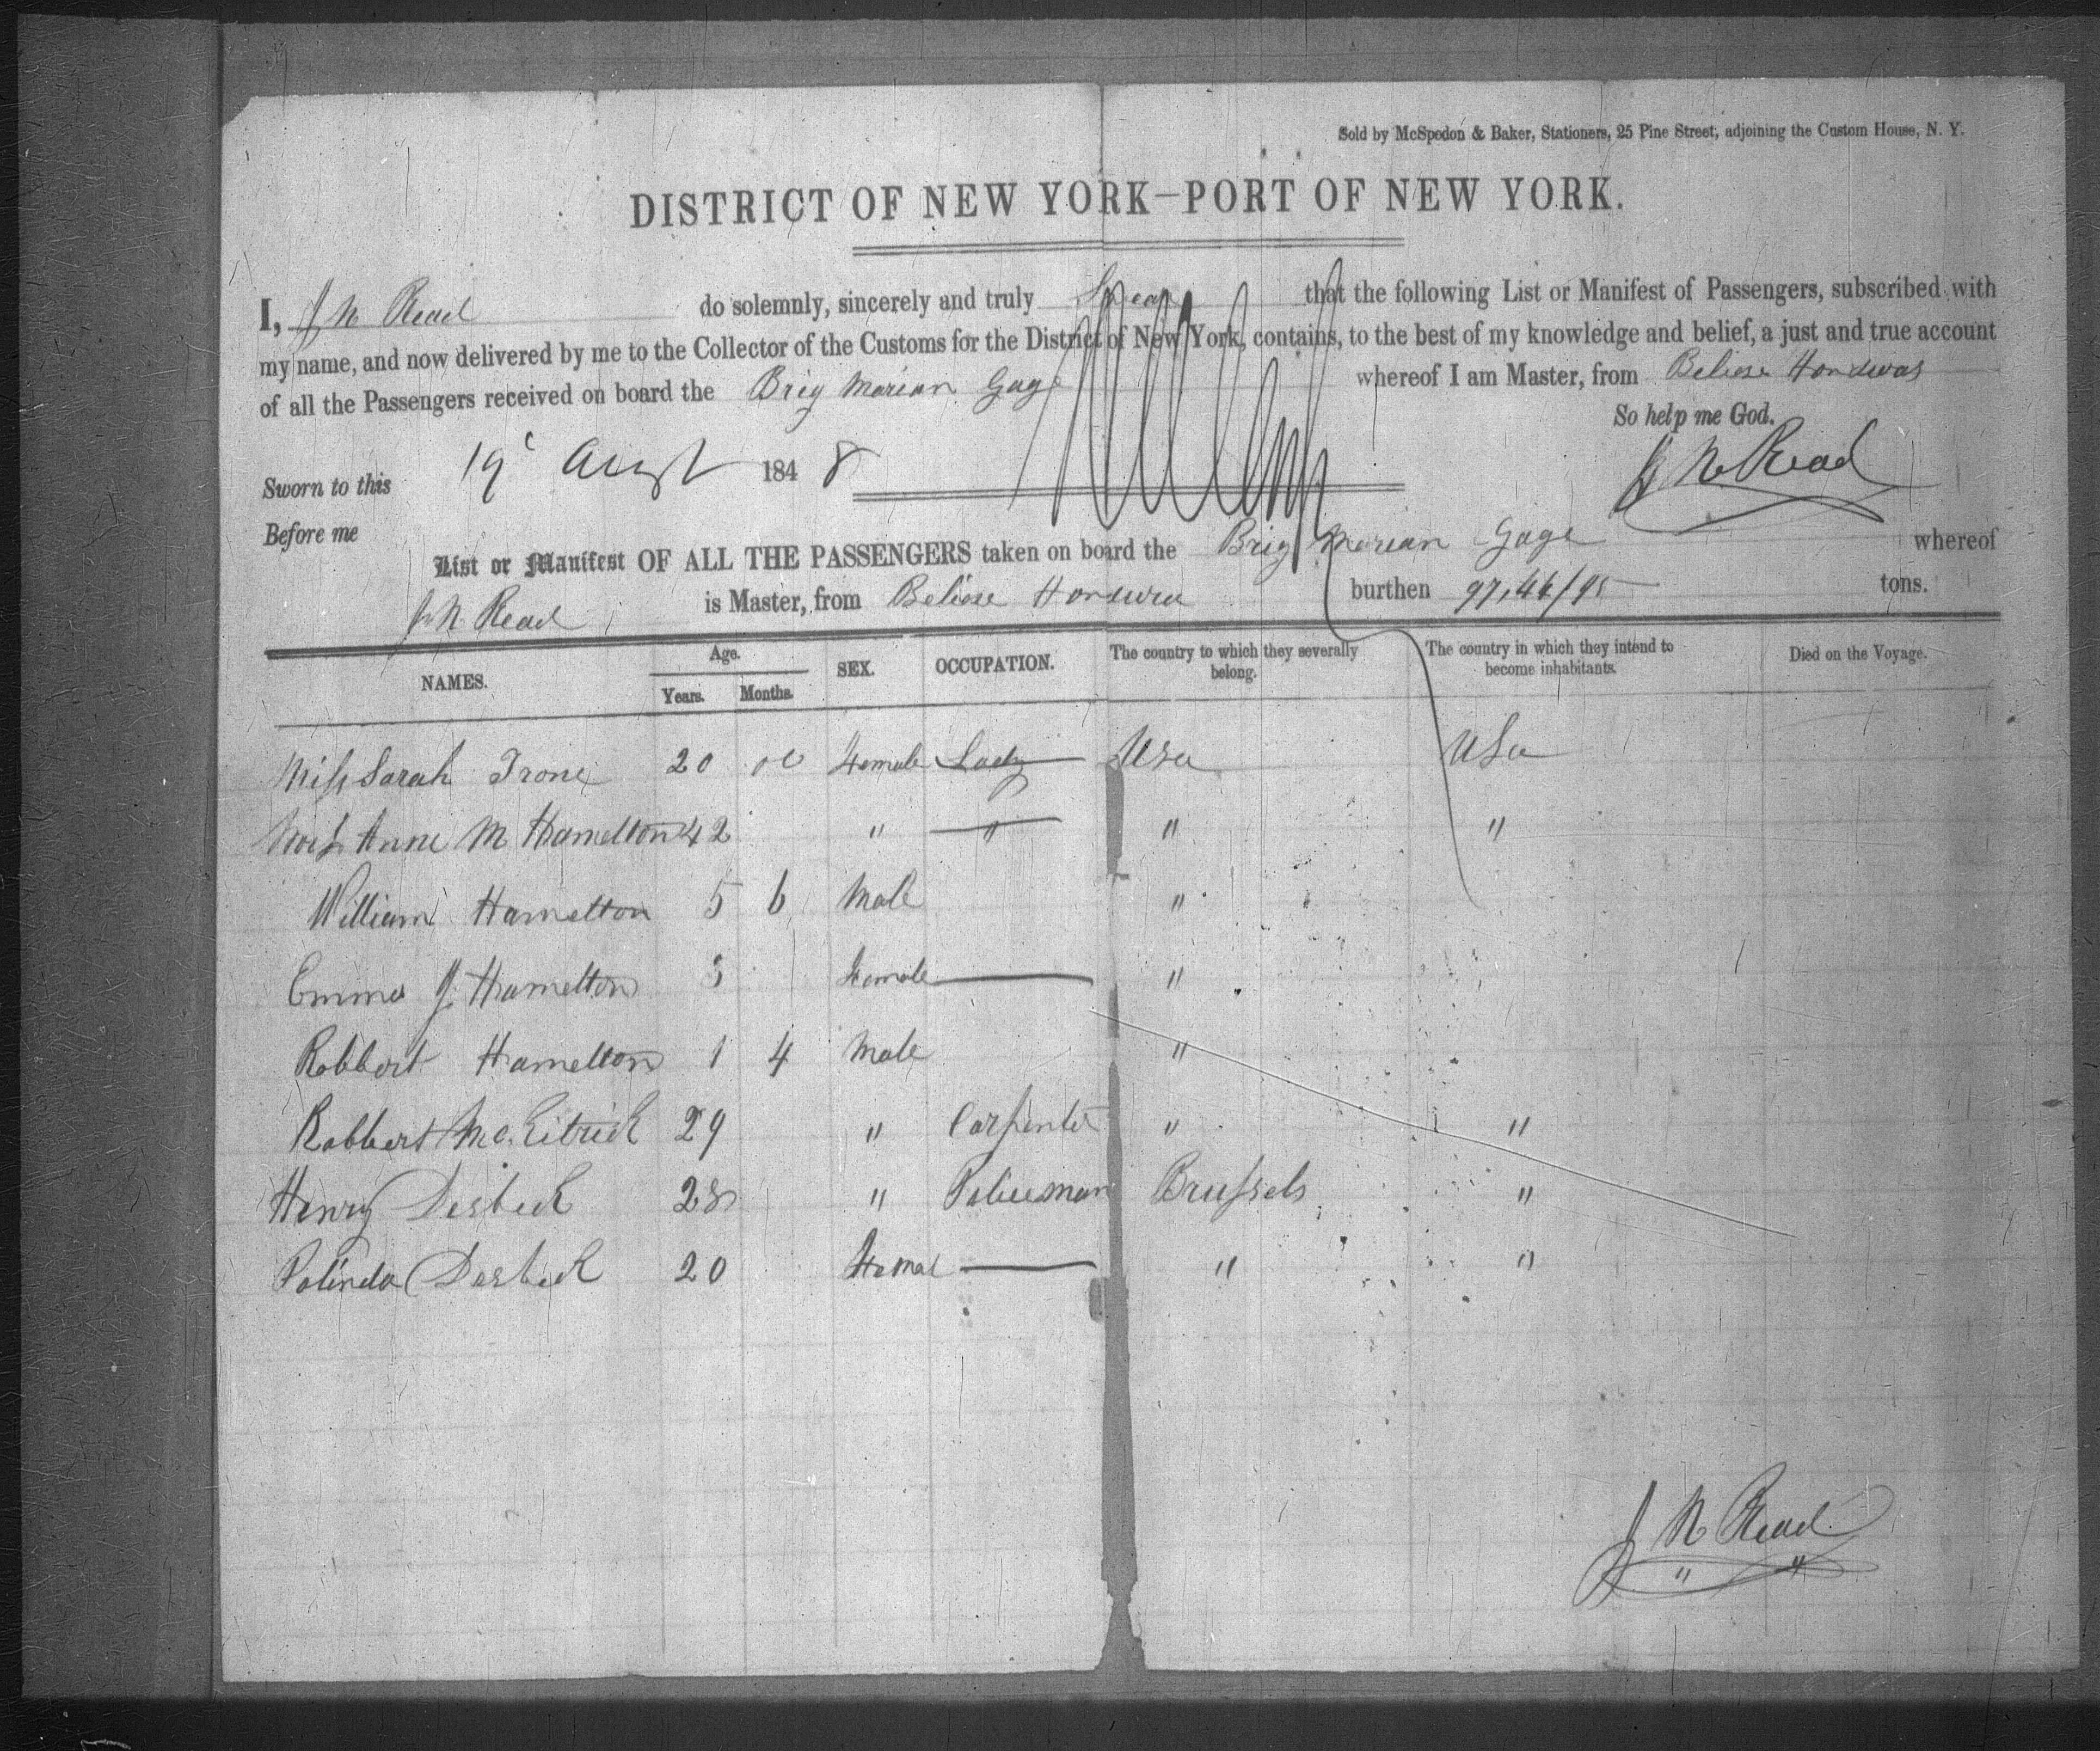 Sold by McSpedon & Baker, Stationers, 25 Pine Street, adjoining the Custom House, N. Y.
DISTRICT OF NEW YORK—PORT OF NEW YORK.
I, J N Read do solemnly, sincerely and truly Swear that the following List or Manifest of Passengers, subscribed with
my name, and now delivered by me to the Collector of the Customs for the District of New York, contains, to the best of my knowledge and belief, a just and true account
of all the Passengers received on board the Brig Marian Gage whereof I am Master, from Beliese Honduras
So help me God.
Sworn to this 19 Augt 1848 J N Read
Before me
List or Manifest OF ALL THE PASSENGERS taken on board the Brig Marian Gage whereof
J N Read is Master, from Beliese Honduras burthen 97,46/95 tons.
NAMES. Age. Years. Months. SEX. OCCUPATION. The country to which they severally belong. The country in which they intend to become inhabitants. Died on the Voyage.
Miss Sarah Trone 20 00 Female Lady Usa USa
Anne M Hamelton 42 " " " "
William Hamelton 5 6 Male "
Emma J. Hamelton 3 Female "
Robbert Hamelton 1 4 Male "
Robbert 29 " Carpenter " "
Henry Desbeck 28 " Policeman Brussels "
Polinda Desbeck 20 Femal " "
J N Read
" "